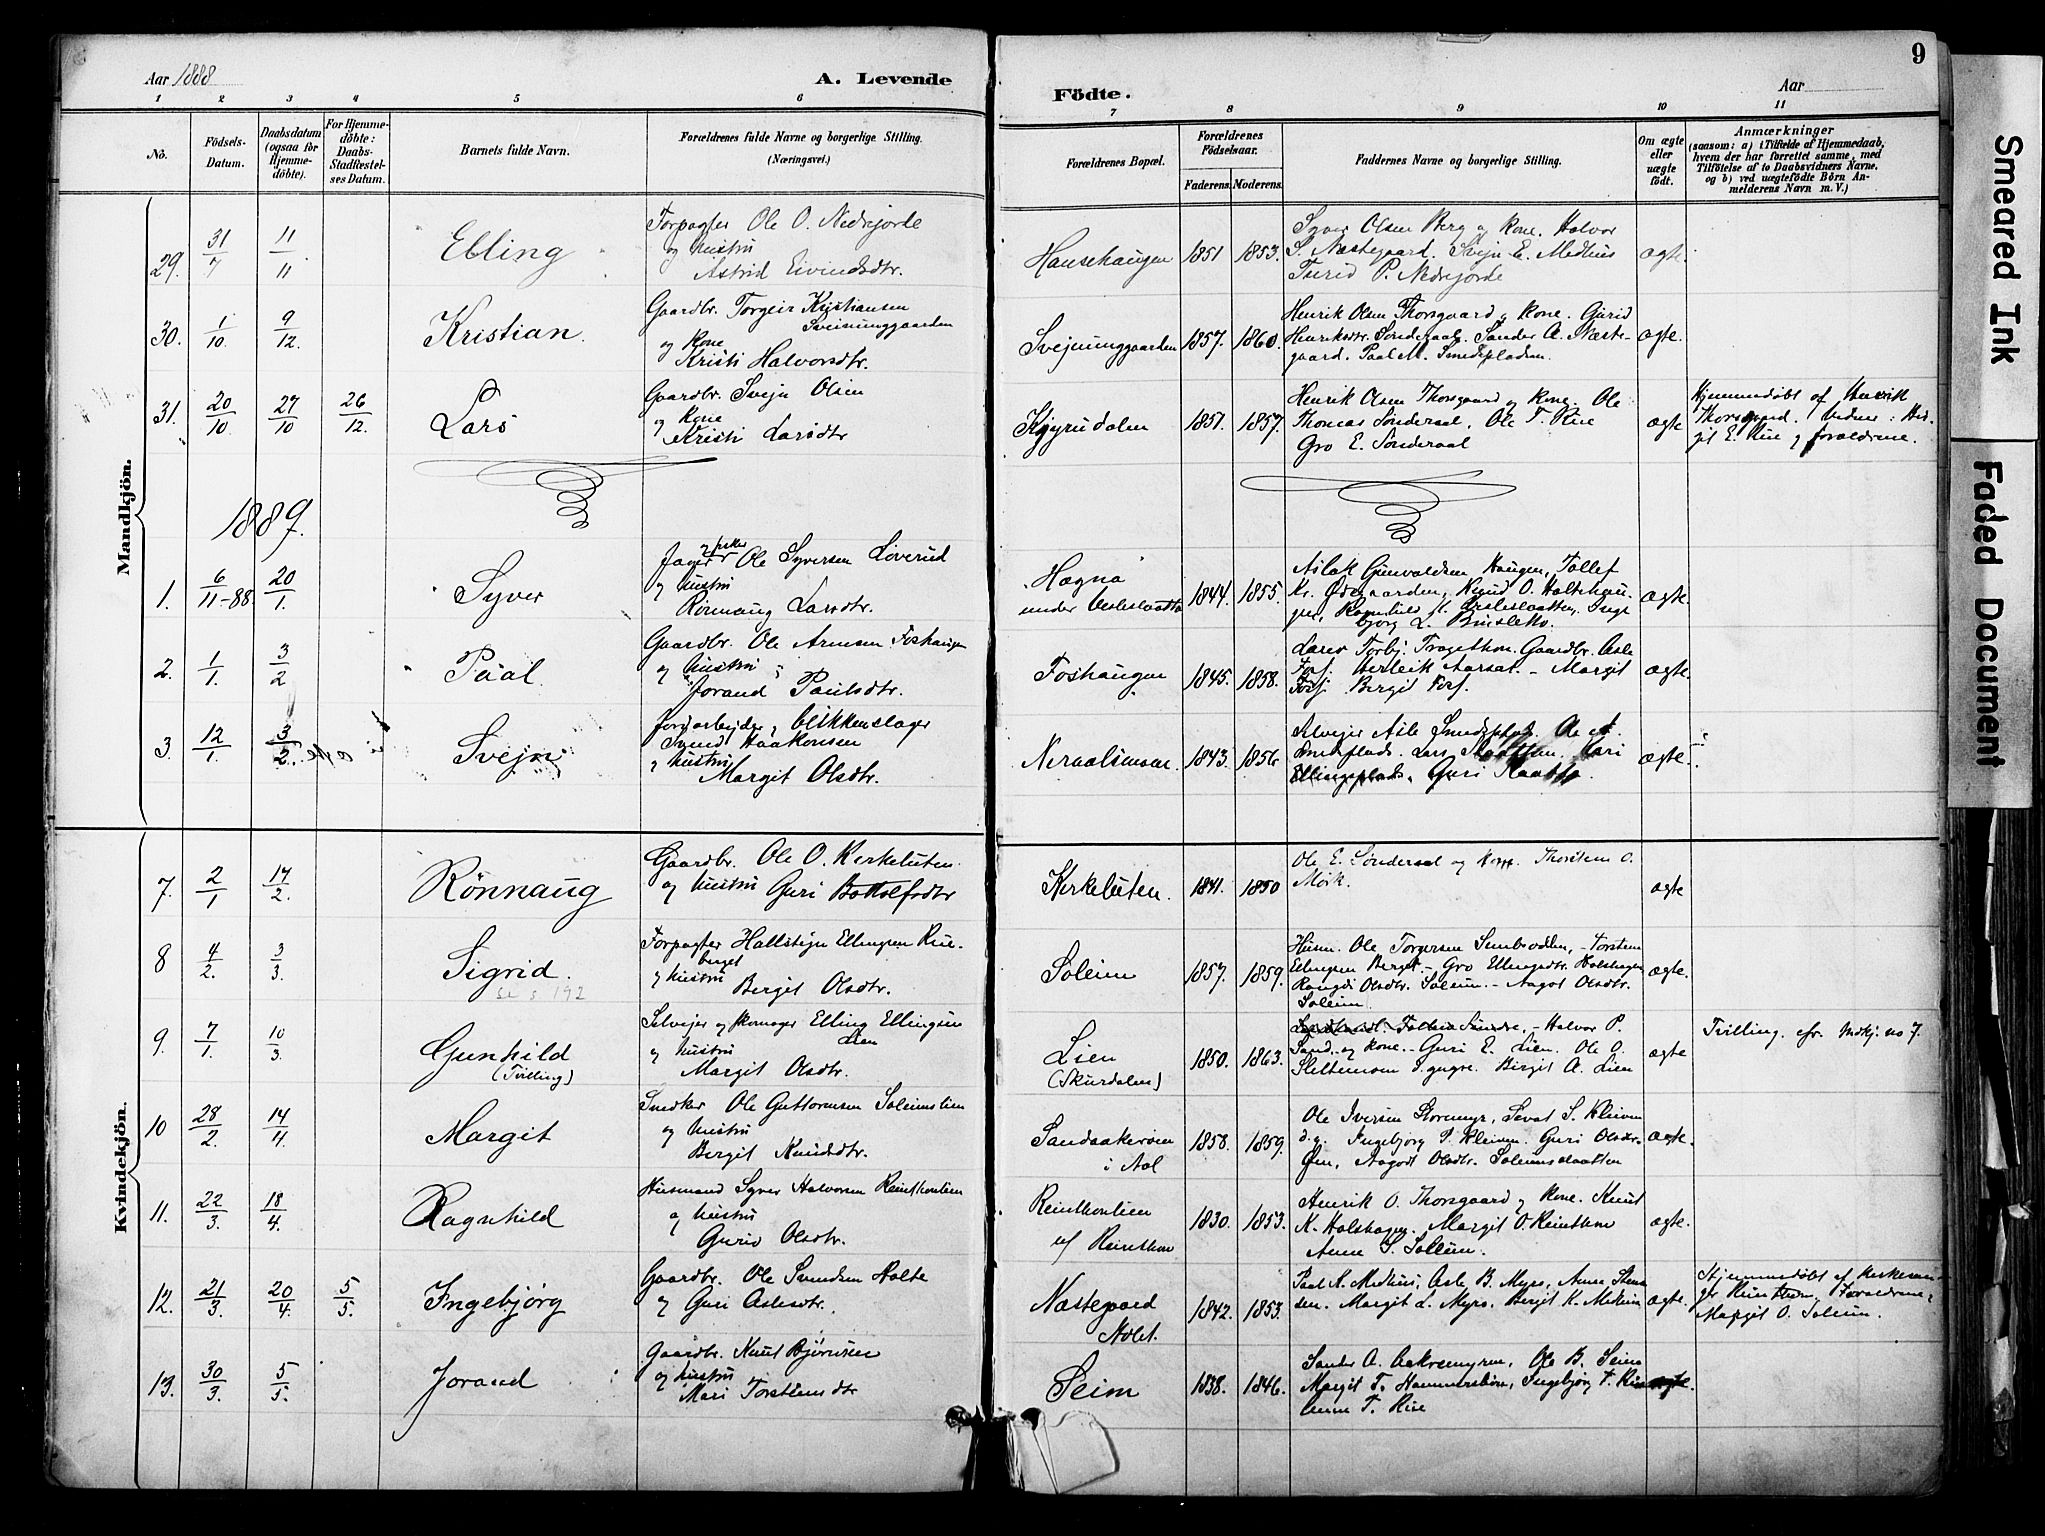 Aar 1888
A. Levende
1 2 3 4 5 6
No.
Födsels-
Datum.
Daabsdatum
(ogsaa for
Hjemme-
döbte).
For Hjemme-
döbte:
Daabs-
Stadfæstel-
ses Datum.
Barnets fulde Navn.
Forældrenes fulde Navne og borgerlige Stilling.
(Næringsvei.)
Mandkjön.
29. 31/7 11/11 Elling
Forpagter Ole O. Nedrejorde
og hustru
Astrid Eivindsdtr.
30. 1/10. 9/12. Kristian.
Gaardbr. Torgeir Kristiansen
Sveinunggaarden
og Kone
Kristi Halvorsdtr.
31. 20/10. 27/10 26/12. Lars
Gaardbr. Svejn Olsen
og Kone
Kristi Larsdtr
1889.
1. 6/11-88. 20/1. Syver
og fisker
Jæger Ole Syversen Løverud
og hustru
Rønnaug Larsdtr.
2. 1/1. 3/2 Paal
Gaardbr. Ole Arnesen Foshaugen
og hustru
Jorand Paulsdtr.
3. 12/1. 3/2. Svejn
Jordarbejder, blikkenslager
Svend Haakonsen
og hustru
Margit Olsdtr.
Kvindekjön.
7. 2/1 17/2. Rönnaug
Gaardbr. Ole O. Kirkeluten.
og hustru Guri Bottolfsdtr
8 4/2. 3/3. Sigrid.
se s 192
Forpagter Hallstejn Ellingsen Rue-
berget
og hustru Bergit Olsdtr.
9. 7/1. 10/3. Gunhild
(Tvilling)
Selvejer og skomager Elling Ellingsen
Lien
og hustru
Margit Olsdtr.
10 28/2. 14/4. Margit
Snedker Ole Guttormsen Soleimslien
og hustru
Bergit Knudsdtr.
11. 22/3. 18/4. Ragnhild
Husmand Syver Halvorsen Reinthonlien
og hustru
Gurid Olsdtr.
12. 21/3. 20/4. 5/5. Ingebjørg
Gaardbr. Ole Svendsen Holte
og Guri Aslesdtr.
13. 30/3. 5/5. Jorand
Gaardbr. Knut Bjørnsen
og hustru
Mari Torsteinsdtr
9
Födte.
Aar
7 8 9 10 11
Forældrenes Bopæl.
Forældrenes
Födselsaar.
Faderens. Moderens.
Faddernes Navne og borgerlige Stilling.
Om ægte
eller
uægte
födt.
Anmærkninger
(saasom: a) i Tilfælde af Hjemmedaab,
hvem der har forrettet samme, med
Tilföielse af to Daabsvidners Navne,
og b) ved uægtefödte Börn An-
melderens Navn m. V.)
Hansehaugen 1851 1853. ægte.
Syver Olsen Berg og Kone. Halvor
S. Næstegaard. Svejn E. Medhus
Turid P. Nedrejorde
Svejnunggaarden 1857. 1860. ægte.
Henrik Olsen Thorsgaard og Kone. Gurid
Henriksdtr. Sønderaal. Sander A. Næste-
gaard. Paal M. Smedspladsen.
1851. 1857. ægte
Henrik Olsen Thorsgaard og Kone. Ole
Thomas Sønderaal, Ole T. Rue
Gro E. Sønderaal
Hjemmedøbt af Henrik
Thorsgaard. Vidner: Ber-
git E. Rue og forældrene.
Hagna
under 1844. 1855. ægte.
Aslak Gunvaldsen Haugen, Tollef
Kr. Ødegaarden, Knud O. Holtehau-
gen, Ragnhild Inge
bjørg L.
Foshaugen 1845. 1858. ægte.
Gaardbr. Asle
Aarsat. – Margit
Bergit
1843. 1856 ægte.
Selvejer Asle
Lars Kari
Guri
Kirkeluten. 1841. 1850 ægte
Ole E. Sønderaal og Kone. Thorstein O.
Moik.
Soleim 1857. 1859. ægte.
Husm. Ole Torgersen – Torstein
Ellingsen Berget – Gro Ellingsdtr.
Rangdi Olsdtr. Soleim. – Aagot Olsdtr.
Soleim
Lien
(Skurdalen) 1850. 1863. ægte
Halvor P.
Sand og Kone. – Guri E. Lien. Ole O.
Slettemoen Birgit A. Lien
Tvilling, cfr. Mdkj. no 7.
Sandaakeren
i Aal 1858. 1859. ægte.
Ole Iversen Stormyr, Sevat S. Kleiven
Ingebjørg P. Kleiven. Guri Olsdtr.
Øen, Aagodt Olsdtr. Soleimsslaatten
Reinthonlien
u/ Reinthon 1830. 1853. ægte.
Henrik O. Thorsgaard og Kone. Knut
K. Margit O. Reinthon
Anne S. Soleim.
Næstegaard
Holet. 1842. 1853. ægte.
Paal K. Medhus, Asle B. Myro, Anne
Margit L. Myro, Bergit K. Medhus
Hjemmedøbt af Kirkesan-
ger Reinthon. Forældrene,
Margit O. Soleim.
Seim 1838. 1846. ægte.
Sander A. Aakremyren, Ole B. Seim
Margit T. Ingebjørg T. Rue
Anne T. Rue
Smeared Ink
Faded Document